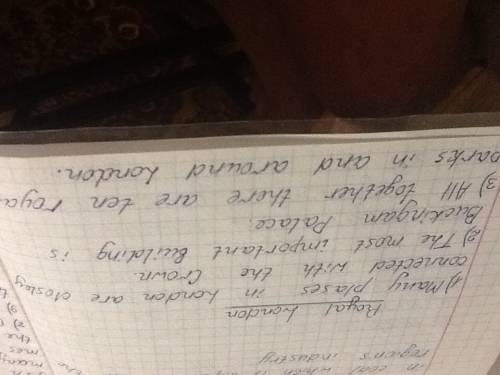 in coal which is
region's industry
Royal London
1) Many plases in London are closley
connected with the Crown.
2) The most important Building is
Buckingam Palace.
3) All together there are ten roya
parks in and around London.
many
mes
the